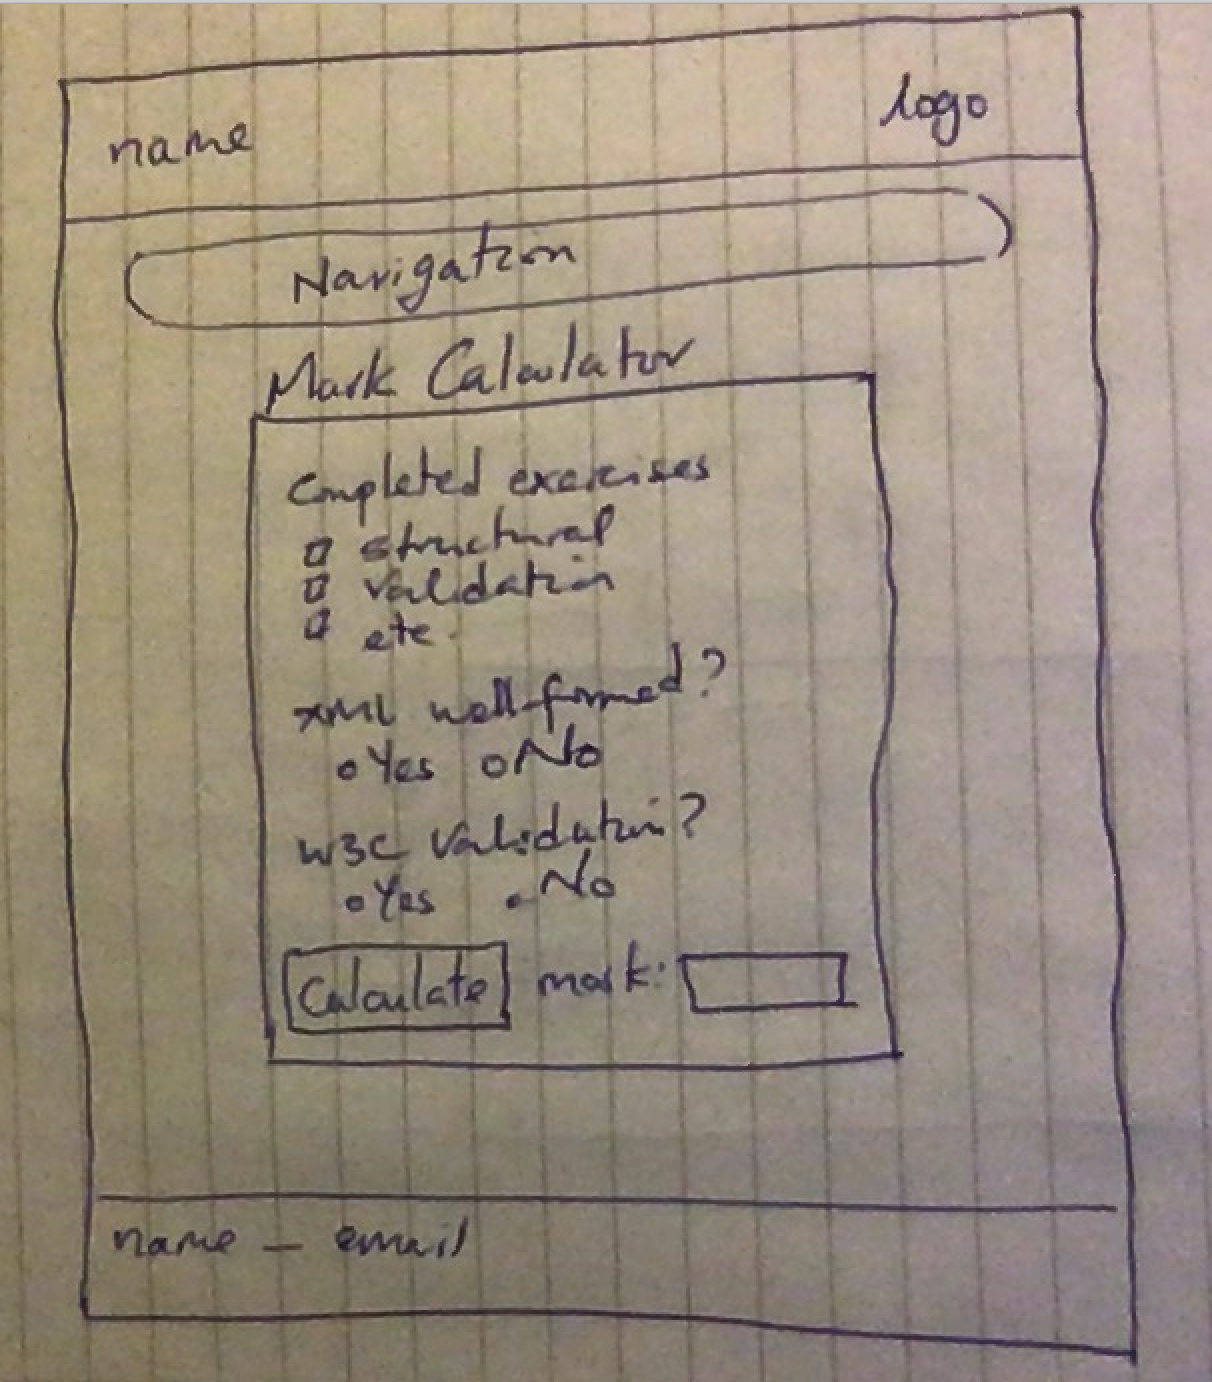 name
logo
Navigation
Mark Calculator
Completed exercises
structural
validation
etc.
XML well-formed?
Yes No
W3C Validation?
Yes No
Calculate mark:
name - email